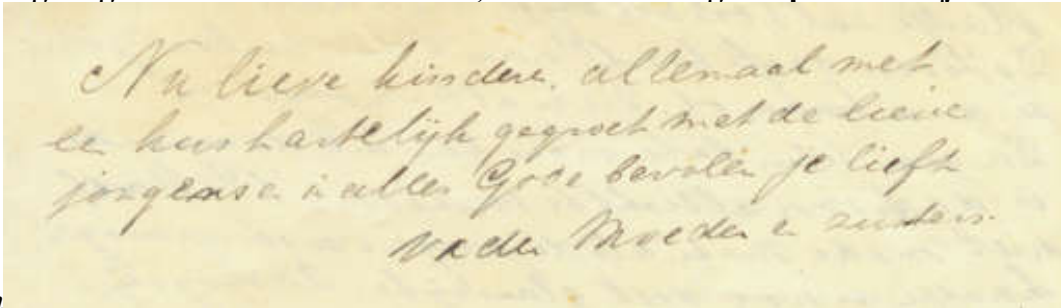 Nu lieve kindere allemaal met
een kus hartelijk gegroet met de lieve
jongens en in alles Gode bevolen je liefh
vader Moeder en zusters